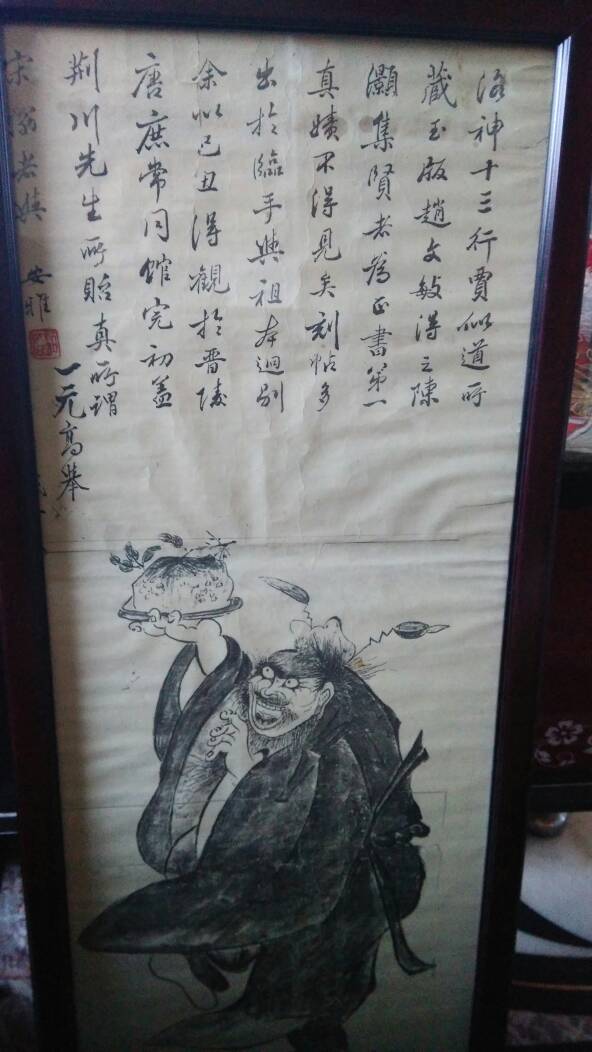 洛神十三行賈似道所
藏玉版趙文敏得之陳
灝集賢者為正書第一
真蹟不得見矣刻帖多
出於臨手與祖本迥別
余以己丑得觀於晉陵
唐庶常同館完初蓋
荆川先生所貽真所謂
宋
安雅
一元高舉